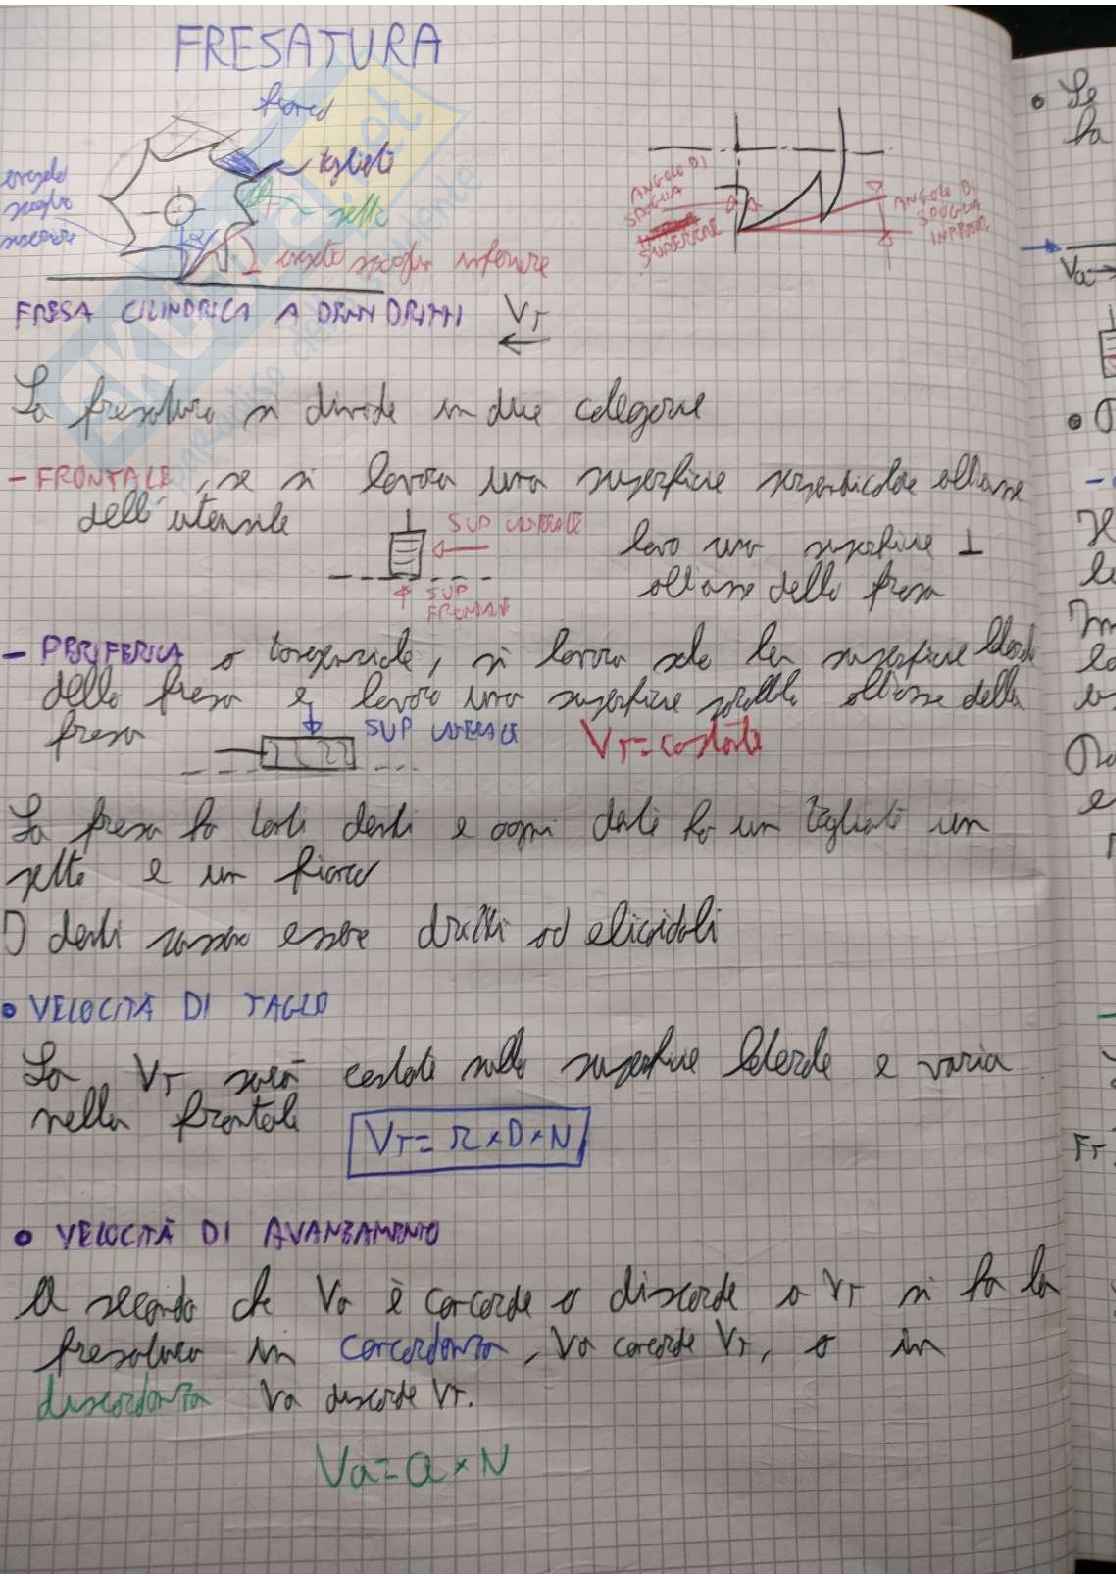 FRESATURA
fianco
tagliente
petto
angolo
spoglia
superiore
angolo spoglia inferiore
ANGOLO DI
SPOGLIA
SUPERIORE
ANGOLO DI
SPOGLIA
INFERIORE
FRESA CILINDRICA A DENTI DRITTI
VT
La fresatura si divide in due categorie
- FRONTALE, se si lavora una superficie perpendicolare all'asse
dell'utensile
SUP LATERALE
SUP
FRONTALE
lavo una superficie ⊥
all'asse della fresa
- PERIFERICA o tangenziale, si lavora solo la superficie laterale
della fresa e lavoro una superficie parallela all'asse della
fresa
SUP LATERALE
VT = costante
La fresa ha tanti denti e ogni dente ha un tagliente un
petto e un fianco
I denti possono essere dritti od elicoidali
• VELOCITÀ DI TAGLIO
La VT sarà costante sulla superficie laterale e varia
nella frontale
VT = π × D × N
• VELOCITÀ DI AVANZAMENTO
A seconda che Va è concorde o discorde a VT si ha la
fresatura in concordanza, Va concorde VT, o in
discordanza Va discorde VT.
Va = a × N
• Se
ha
Va
FT